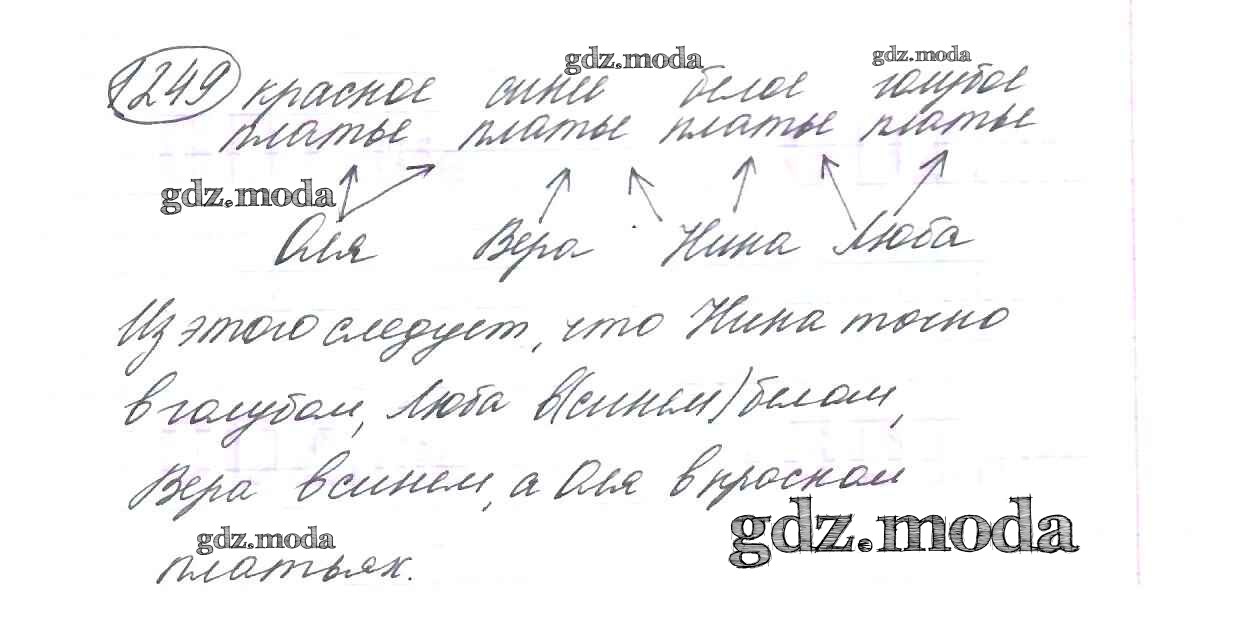 1249 красное синее белое голубое
платье платье платье платье
Оля Вера Нина Люба
Из этого следует, что Нина точно
в голубом, Люба в(синем) белом,
Вера в синем, а Оля в красном
платьях.
gdz.moda
gdz.moda
gdz.moda
gdz.moda
gdz.moda